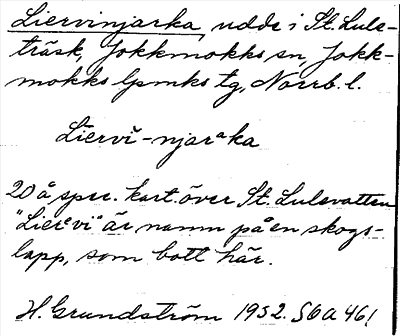 Liervinjarka, udde i St. Lule-
träsk, Jokkmokks sn, Jokk-
mokks lpmks tg, Norrb. l.
Liervi-njarᵃka
20 å, spec. kart. över St. Lulevatten
"Lierᵉvi" är namn på en skogs-
lapp, som bott här.
H. Grundström 1932. S6a 461